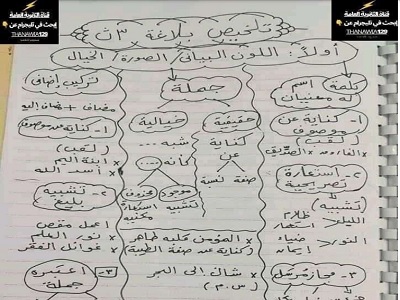 قناة الثانوية العامة
إبحث في تليجرام عن
THANAWIA129
قناة الثانوية العامة
إبحث في تليجرام عن
THANAWIA129
تلخيص بلاغة ٣ ث
أولاً: اللون البياني / الصورة / الخيال
كلمة
اسم
له معنيان
١- كناية عن
موصوف
(لقب)
الفاروق
الصديق
٢- استعارة
تصريحية
(تشبيه)
الليل
ظلام
استعمار
النور
ضياء
إيمان
٣- مجاز مرسل
جملة
حقيقية
خيالية
كناية
عن
صفة
نسبة
شبه ...
كأنه ...
موجود
محذوف
تشبيه
استعارة
مكنية
× المؤمن قلبه طاهر
(كناية عن صفة الطيبة)
(س . م .)
تركيب إضافي
مضاف + مضاف إليه
١- كناية عن موصوف
(لقب)
× ابنة اليم
× أسد الله
٢- تشبيه
بليغ
× نور العلم
× غوائل الفقر
٣-
جملة